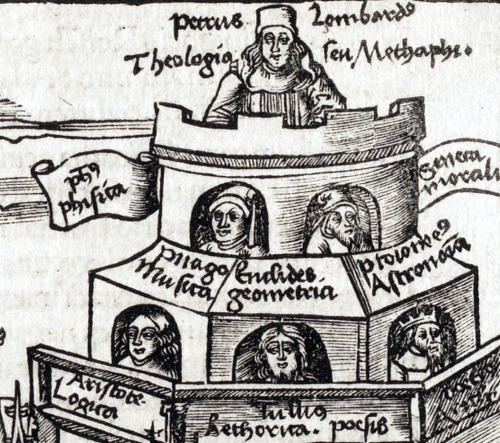 Petrus Lombard9
Theologia seu Methaphi.
ph9
phisica
Seneca
morali
Pitago
Musica
Euclides
geometria
ptolome9
Astronomia
Aristote.
Logica
Tullius
Rethorica. poesis